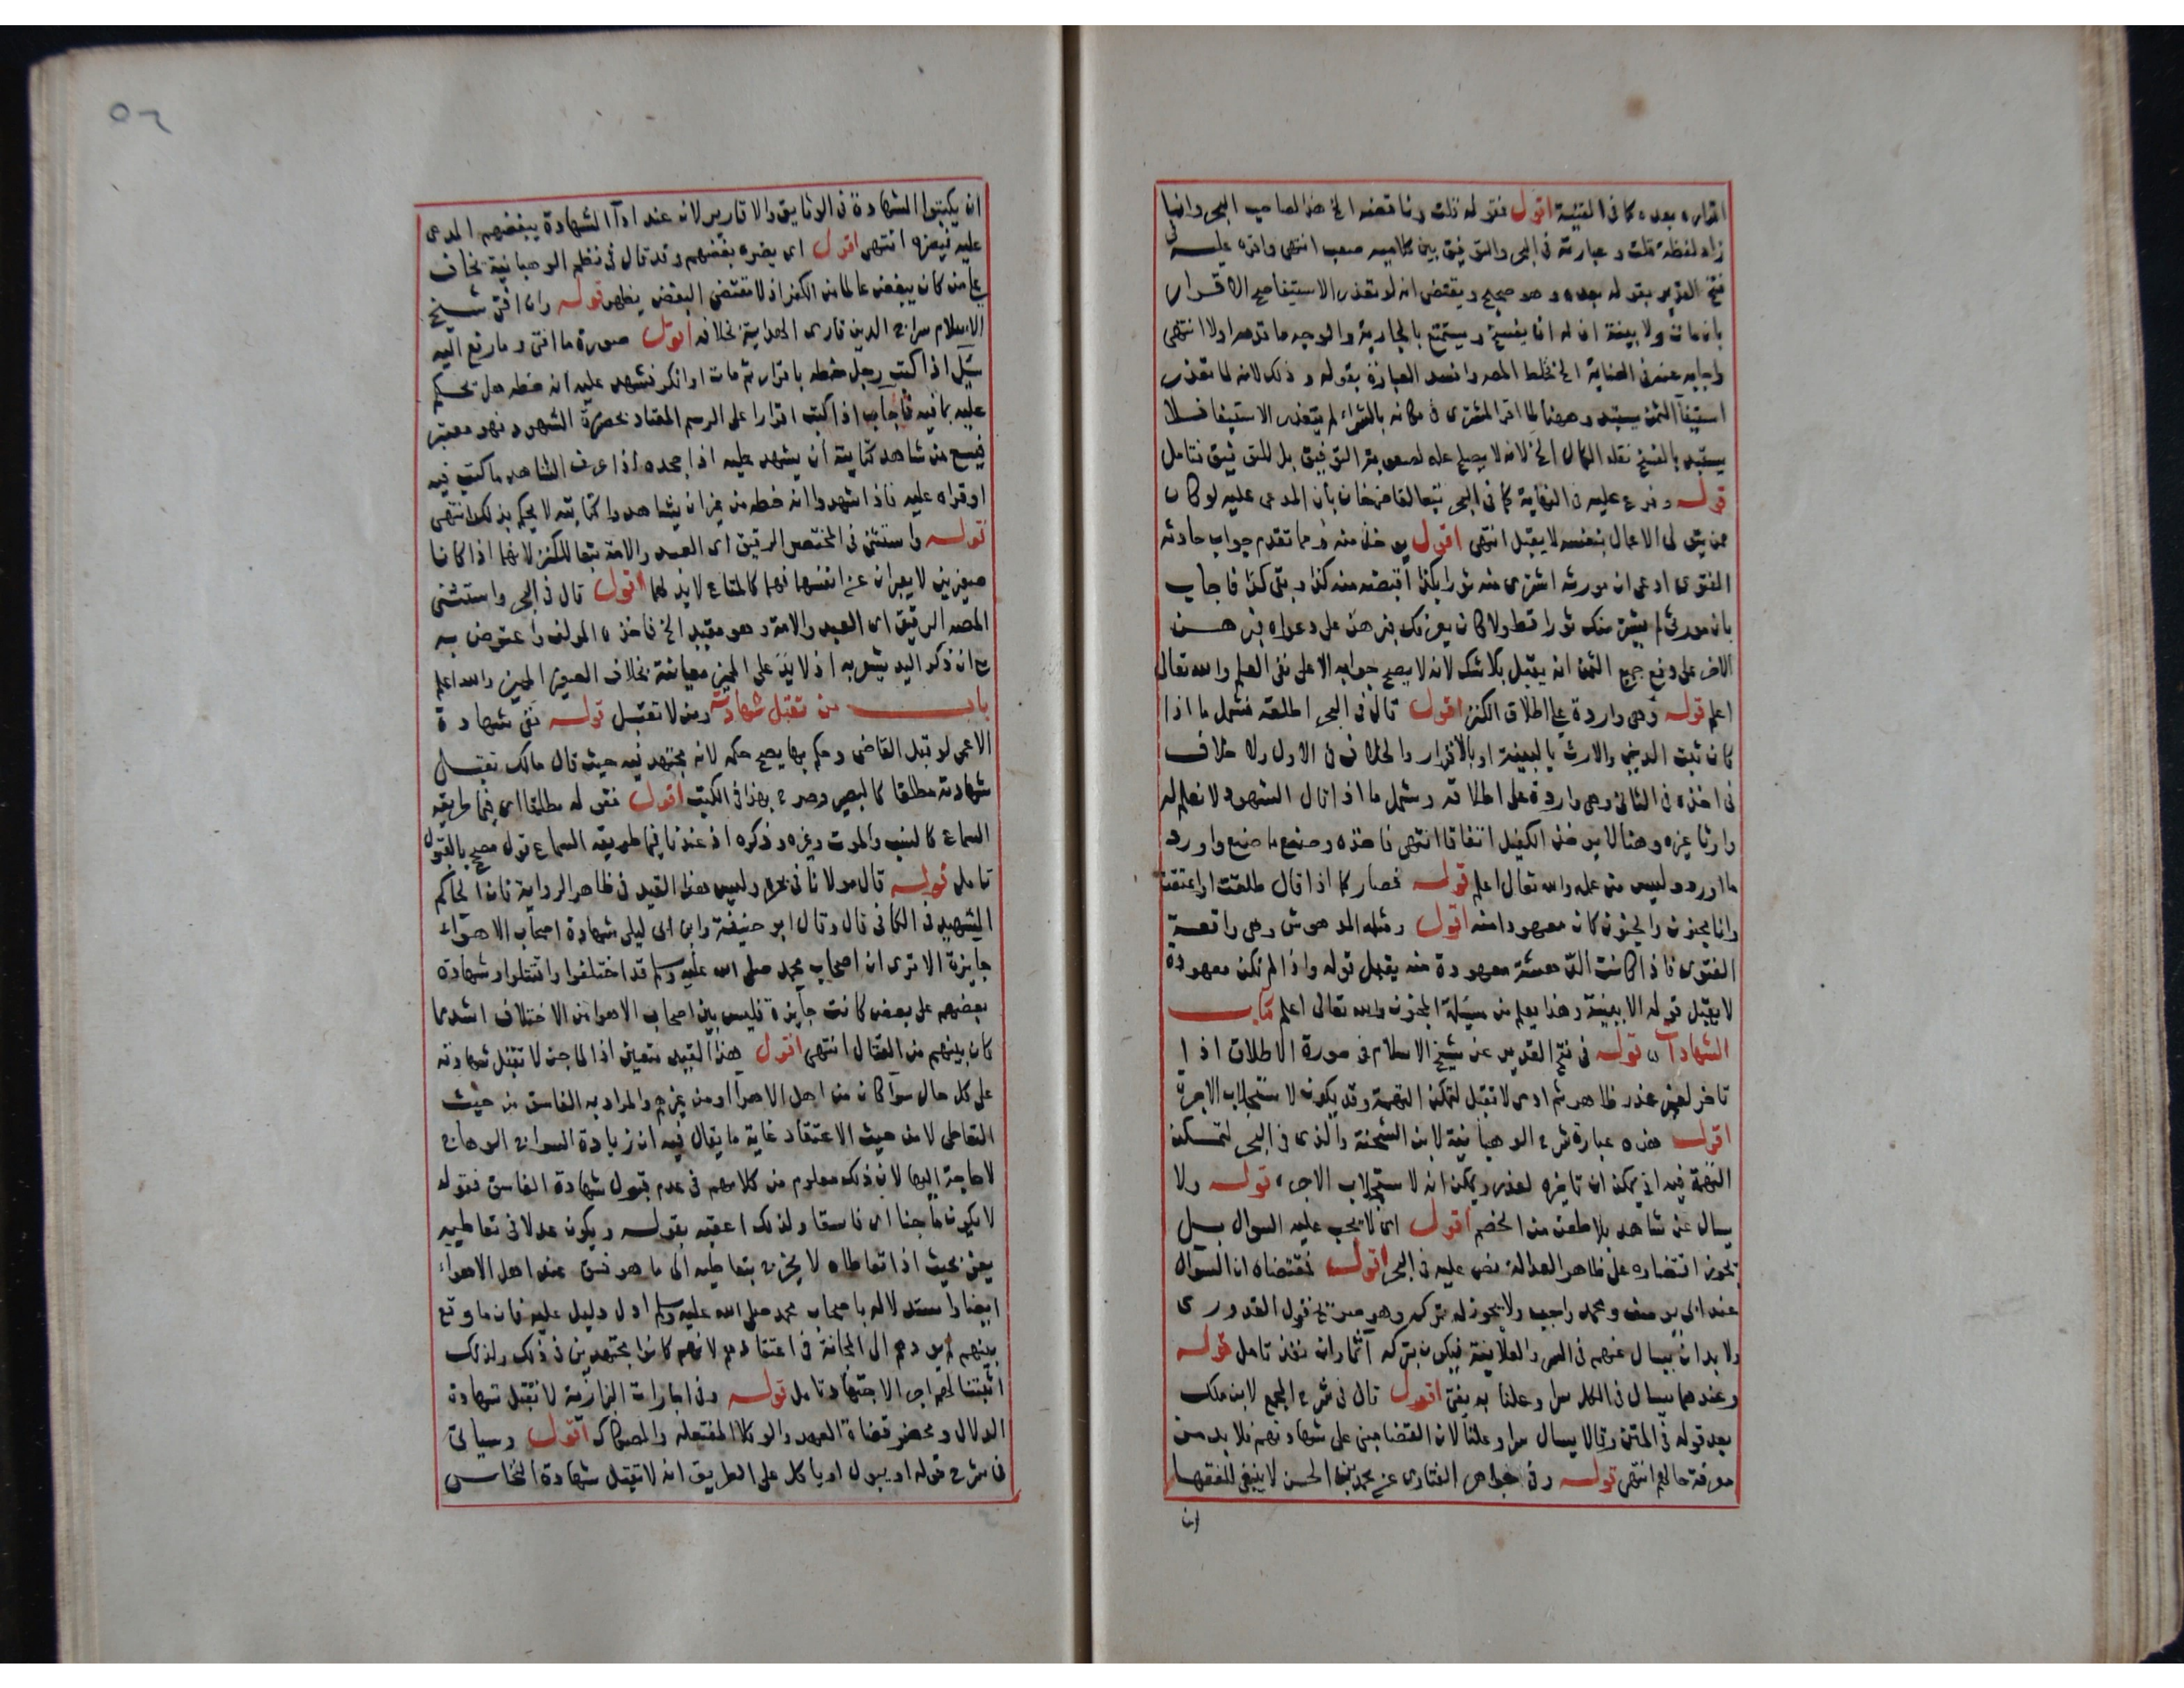 اقراره بعده كما في القنية اقول فقوله قلت وناقضه الخ هذا لصاحب البحر وانما
زاد لفظة قلت وعبارته في البحر والتوفيق بين كلاميه صعب انتهى واقره عليه في
فتح القدير بقوله بعده وهو صحيح ويقتضي انه لو تعذر الاستيفا مع الاقرار
بان مات ولا بينة ان له ان يفسخ ويستمتع بالجارية والوجه ما قدمه اولا انتهى
واجاب عنه في العناية الخ فخلط المص وافسد العبارة بقوله وذلك لانه لما تعذر
استيفآ الثمن يستبد وههنا لما اقر المشتري في مكانه بالشراء لم يتعذر الاستيفا فلا
يستبد بالفسخ نقله الكمال الخ لانه لا يصلح علة لصعوبة التوفيق بل للتوفيق فتامل
قوله وفرع عليه في النهاية كما في البحر تبعا لقاضيخان بأن المدعى عليه لو كان
ممن يتولى الاعمال بنفسه لا يقبل انتهى اقول يوخذ منه ومما تقدم جواب حادثة
الفتوى ادعى ان مورثه اشترى منه ثورا بكذا اقبضه منه كذا وبقى كذا فاجاب
بان مورثي لم يشتر منك ثورا قط ولا كان يعرفك فبرهن على دعواه فبرهن
الاخر على دفع جميع الثمن انه يقبل بلا شك لانه لا يصح جوابه الا على نفي العلم والله تعالى
اعلم قوله وهي واردة على اطلاق الكنز اقول قال في البحر اطلقه فشمل ما اذا
كان ثبت الدين والارث بالبينة او بالاقرار والخلاف في الاول ولا خلاف
في اخذه في الثاني وهي واردة على اطلاقه وشمل ما اذا قال الشهود لا نعلم له
وارثا غيره وهنا لا يوخذ الكفيل اتفاقا انتهى فاخذه وصنع ما صنع واورد
ما اورد وليس من محله والله تعالى اعلم قوله فصار كما اذا قال طلقت او اعتقت
وانا مجنون والجنون كان معهودا منه اقول ومثله المدهوش وهي واقعة
الفتوى فاذا كانت الدهشة معهودة منه يقبل قوله واذا لم تكن معهودة
لا يقبل قوله الا ببينة وهذا يعلم من مسئلة المجنون والله تعالى اعلم كتاب
الشهادات قوله في فتح القدير عن شيخ الاسلام في صورة الاطلاق اذا
تاخر لغير عذر ظاهر ثم ادى لا تقبل لتمكن التهمة وقد يكون لاستجلاب الاجرة
اقول هذه عبارة شرح الوهبانية لابن الشحنة والذي في البحر لتمكن
التهمة فيه اذ يمكن ان تاخيره لعذر ويمكن انه لاستجلاب الاجرة قوله ولا
يسال عن شاهد بلا طعن من الخصم اقول اي لا يجب عليه السوال بل
يجوز اقتصاره على ظاهر العدالة نص عليه في البحر اقول فمقتضاه ان السوال
عند ابي يوسف ومحمد واجب ولا يجوز له تركه وهو صريح قول القدوري
ولا بد ان يسال عنهم في السر والعلانية فيكون بتركه آثما وان نفذ تامل قوله
وعندهما يسال في الكل سرا وعلنا به يفتى اقول قال في شرح المجمع لابن ملك
بعد قوله في المتن وقالا يسال سرا وعلنا لان القضا مبني على شهادتهم فلا بد من
معرفة حالهم انتهى قوله وفي جواهر الفتاوى عن محمد بن الحسن لا ينبغي للفقها
ان
٥٢
ان يكتبوا الشهادة في الوثايق والاقارير لانه عند ادآ الشهادة يبغضهم المدعى
عليه فيضره انتهى اقول اي يضره بغضهم وقد قال في نظم الوهبانية يخاف
على من كان يبغض عالما من الكفر اذ لا مقتضى البغض يظهر قوله وان افتى شيخ
الاسلام سراج الدين قارى الهداية بخلافه اقول صورة ما افتى وما رفع اليه
سئل اذا كتب رجل خطه باقرار ثم مات او انكر فشهد عليه انه خطه هل يحكم
عليه بما فيه فاجاب اذا كتب اقرارا على الرسم المعتاد بحضرة الشهود فهو معتبر
فيسع من شاهد كتابته أن يشهد عليه اذا جحده اذا عرف الشاهد ما كتب فيه
او قراه عليه فاذا شهدوا انه خطه من غير ان يشاهدوا كتابته لا يحكم بذلك انتهى
قوله واستثنى في المختصر الرقيق اى العبد والامة تبعا للكنز لانهما اذا كانا
صغيرين لا يعبران عن انفسهما فهما كالمتاع لا يد لهما اقول قال في البحر واستثنى
المصه الرقيق اى العبد والامة وهو مقيد الخ فاخذه المولف واعترض به
مع ان ذكر اليد يشعر به اذ لا يد على المميز معاينة بخلاف الصغير المميز والله اعلم
باب من تقبل شهادته ومن لا تقبل قوله نفى شهادة
الاعمى لو قبل القاضى وحكم بها يصح حكمه لانه مجتهد فيه حيث قال مالك تقبل
شهادته مطلقا كالبصير وصرح بهذا في الكتب اقول فقوله مطلقا اى فيما طريقه
السماع كالنسب والموت وغيره وذكره اذ عندنا فيما طريقه السماع قول مصحح بالقبول
تامل قوله قال مولانا في بحره وليس هذا القيد في ظاهر الرواية فان الحاكم
الشهيد في الكافي قال وقال ابو حنيفة وابن ابى ليلى شهادة اصحاب الاهوآء
جايزة الا ترى ان اصحاب محمد صلى الله عليه وسلم قد اختلفوا واقتتلوا وشهادة
بعضهم على بعض كانت جايزة فليس بين اصحاب الاهوا من الاختلاف اشد مما
كان بينهم من القتال انتهى اقول هذا القيد متعين اذ الماجن لا تقبل شهادته
على كل حال سوآ كان من اهل الاهوآ او من غيرهم والمراد به الفاسق من حيث
التعاطى لا من حيث الاعتقاد غاية ما يقال فيه ان زيادة السراج الوهاج
لا حاجة اليها لان ذلك معلوم من كلامهم في عدم قبول شهادة الفاسق فقوله
لا يكون ماجنا اى فاسقا ولذلك اعقبه بقوله ويكون عدلا في تعاطيه
يعني بحيث اذا تعاطاه لا يخرج بتعاطيه الى ما هو فسق عند اهل الاهوآء
ايضا واستدلاله باصحاب محمد صلى الله عليه وسلم ادل دليل عليه فان ما وقع
بينهم لم يودهم الى المجانة في اعتقادهم لانهم كانوا مجتهدين في ذلك ولذلك
اثبتنا لهم اجر الاجتهاد تامل قوله وفي اجارات البزازية لا تقبل شهادة
الدلال ومحضر قضاة العهد والوكلا المفتعلة والصكاك اقول وسياتى
في شرح قوله او يبول او ياكل على الطريق انه لا تقبل شهادة النخاس